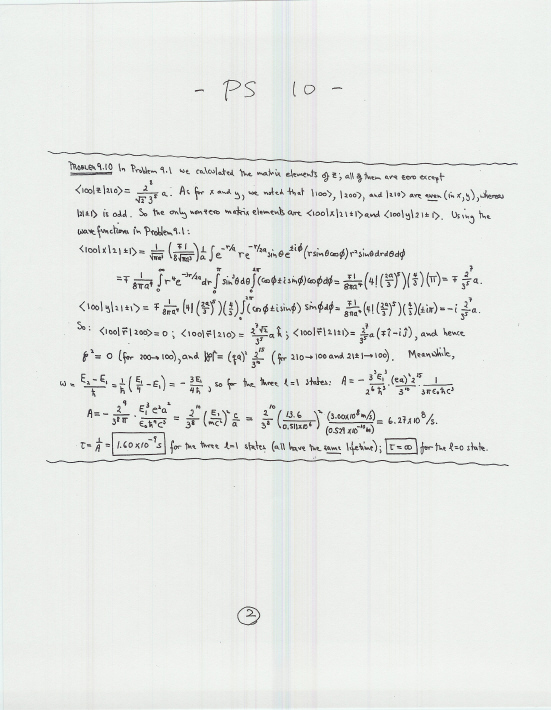 - PS 10 -
PROBLEM 9.10 In Problem 9.1 we calculated the matrix elements of z; all of them are zero except
<100|z|210> = 2^8/(√2 3^5) a. As for x and y, we noted that |100>, |200>, and |210> are even (in x, y), whereas
|21±1> is odd. So the only nonzero matrix elements are <100|x|21±1> and <100|y|21±1>. Using the
wave functions in Problem 9.1:
<100|x|21±1> = 1/√(πa³) (∓1/(8√(πa³))) 1/a ∫ e^(-r/a) r e^(-r/2a) sinθ e^(±iϕ) (r sinθ cosϕ) r² sinθ dr dθ dϕ
= ∓ 1/(8πa⁴) ∫₀^∞ r⁴ e^(-3r/2a) dr ∫₀^π sin³θ dθ ∫₀^2π (cosϕ ± i sinϕ) cosϕ dϕ = ∓1/(8πa⁴) (4! (2a/3)^5) (4/3) (π) = ∓ 2^7/3^5 a.
<100|y|21±1> = ∓ 1/(8πa⁴) (4! (2a/3)^5) (4/3) ∫₀^2π (cosϕ ± i sinϕ) sinϕ dϕ = ∓1/(8πa⁴) (4! (2a/3)^5) (4/3) (±iπ) = -i 2^7/3^5 a.
So: <100|r⃗|200> = 0; <100|r⃗|210> = 2^7√2/3^5 a k̂; <100|r⃗|21±1> = 2^7/3^5 a (∓î - iĵ), and hence
p² = 0 (for 200→100), and |p|² = (qa)² 2^15/3^10 (for 210→100 and 21±1→100). Meanwhile,
ω = (E₂ - E₁)/ħ = 1/ħ (E₁/4 - E₁) = - 3E₁/4ħ, so for the three l=1 states: A = - 3³E₁³/(2^6 ħ³) · (ea)² 2^15/3^10 · 1/(3πε₀ħc³)
A = - 2^9/(3^8 π) · E₁³e²a²/(ε₀ħ⁴c³) = 2^10/3^8 (E₁/mc²)² c/a = 2^10/3^8 (13.6/0.511×10^6)² (3.00×10^8 m/s)/(0.529×10^-10 m) = 6.27×10^8 /s.
τ = 1/A = 1.60×10^-9 s for the three l=1 states (all have the same lifetime); τ = ∞ for the l=0 state.
2